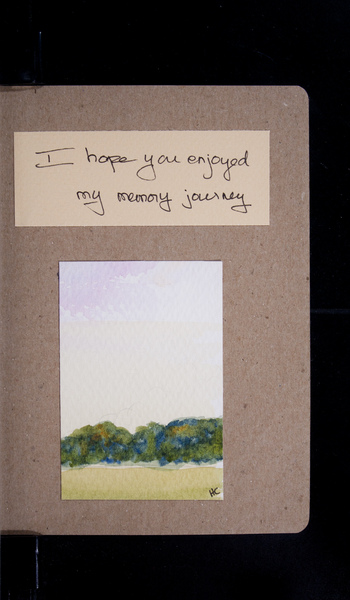 I hope you enjoyed
my memory journey
HC